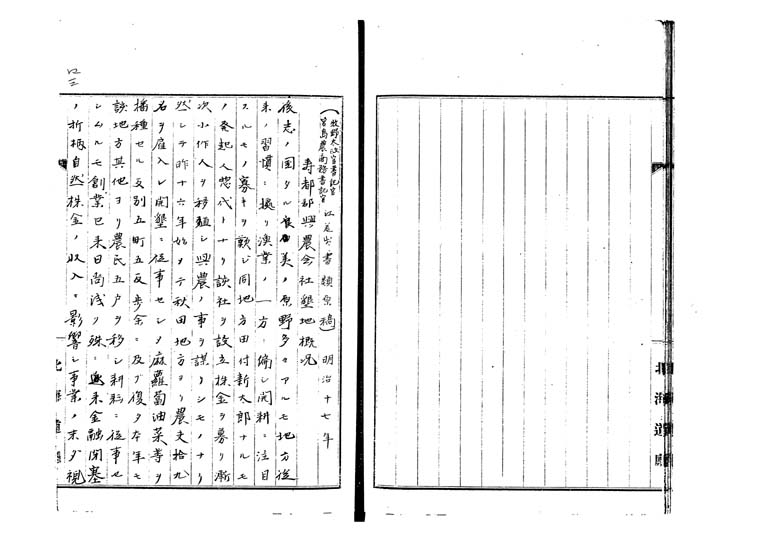 北海道廳
(牧野太政官書記官
菅島農商務書記官
以差出書類原稿) 明治十七年
寿都郡興農会社墾地概况
後志ノ国タル良美ノ原野多々アルモ地方従
来ノ習慣ニ換リ漁業ノ一方ニ偏シ開耕ニ注目
スルモノ寡キヲ歎シ同地方田付新太郎ナルモ
ノ発起人惣代トナリ該社ヲ設立株金ヲ募リ漸
次小作人ヲ移植シ興農ノ事ヲ謀リシモノナリ
然シテ昨十六年始メテ秋田地方ヨリ農夫拾九
名ヲ雇入レ開墾ニ従事セシメ麻蘿蔔油菜等ヲ
播種セル反別五町五反歩余ニ及ヒ復タ本年モ
該地方其他ヨリ農民五戸ヲ移シ耕耘ニ従事セ
シムルモ創業已来日尚浅ク殊ニ近来金融閉塞
ノ折柄自然株金ノ收入ニ影響シ事業ノ未タ視
北海道廳